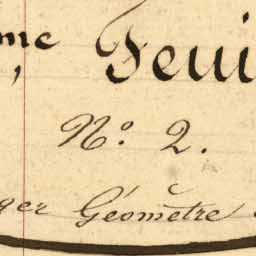 me, Feui
N.º 2.
ger Géomètre